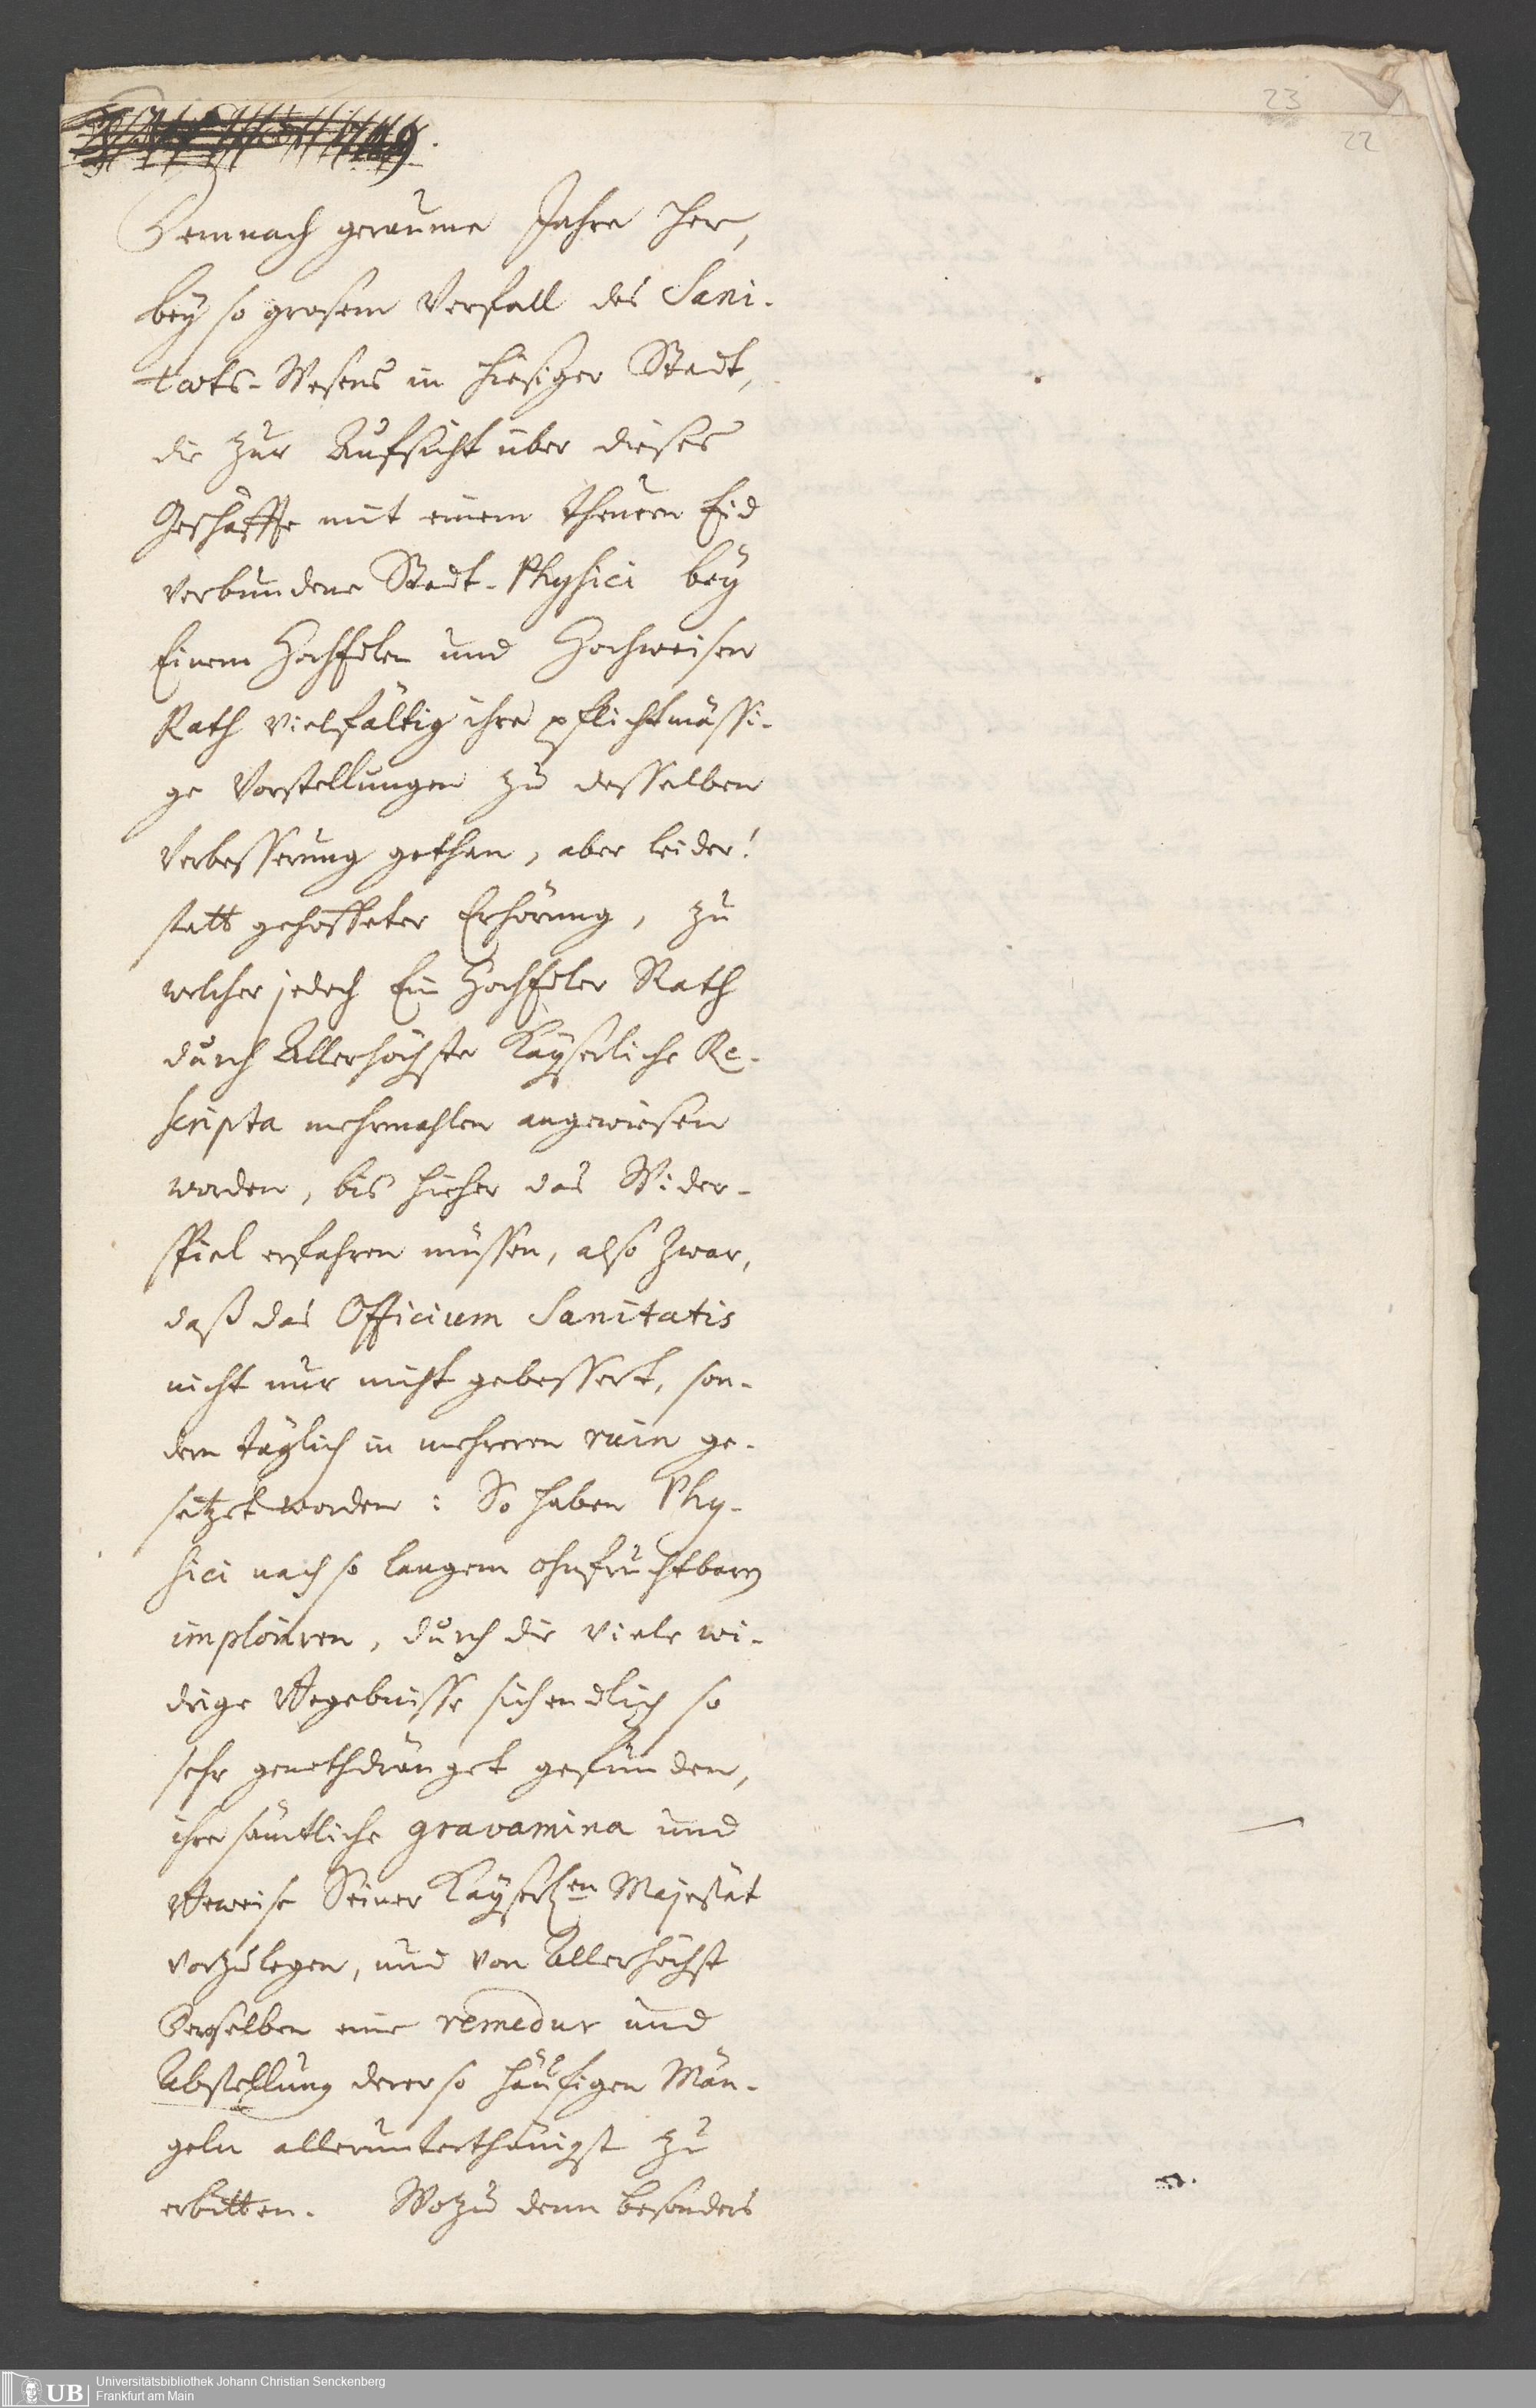 23
22
1749.
Demnach geraume Jahre her,
bey so grosem Verfall des Sani-
taets-Wesens in hiesiger Stadt,
die zur Aufsicht über dieses
Geschäffte mit einem theuren Eid
verbundene Stadt-Physici bey
Einem HochEdlen und Hochweisen
Rath vielfältig ihre pflichtmässi-
ge Vorstellungen zu desselben
Verbesserung gethan, aber leider!
statt gehoffeter Erhörung, zu
welcher jedoch Ein HochEdler Rath
durch Allerhöchste Kayserliche Re-
scripta mehrmahlen angewiesen
worden, bis hieher das Wider-
spiel erfahren müssen, also zwar,
daß das Officium Sanitatis
nicht nur nicht gebessert, son-
dern täglich in mehreren ruin ge-
setzet worden: So haben Phy-
sici nach so langem ohnfruchtbarn
imploriren, durch die viele wi-
drige Begebnisse sich endlich so
sehr genothdränget gefunden,
ihre sämtliche gravamina und
Beweise Seiner Kayserlen Majestät
vorzulegen, und von Allerhöchst
Deroselben eine remedur und
Abstellung derer so häufigen Män-
geln allerunterthänigst zu
erbitten. Wozu denn besonders
UB
Universitätsbibliothek Johann Christian Senckenberg
Frankfurt am Main